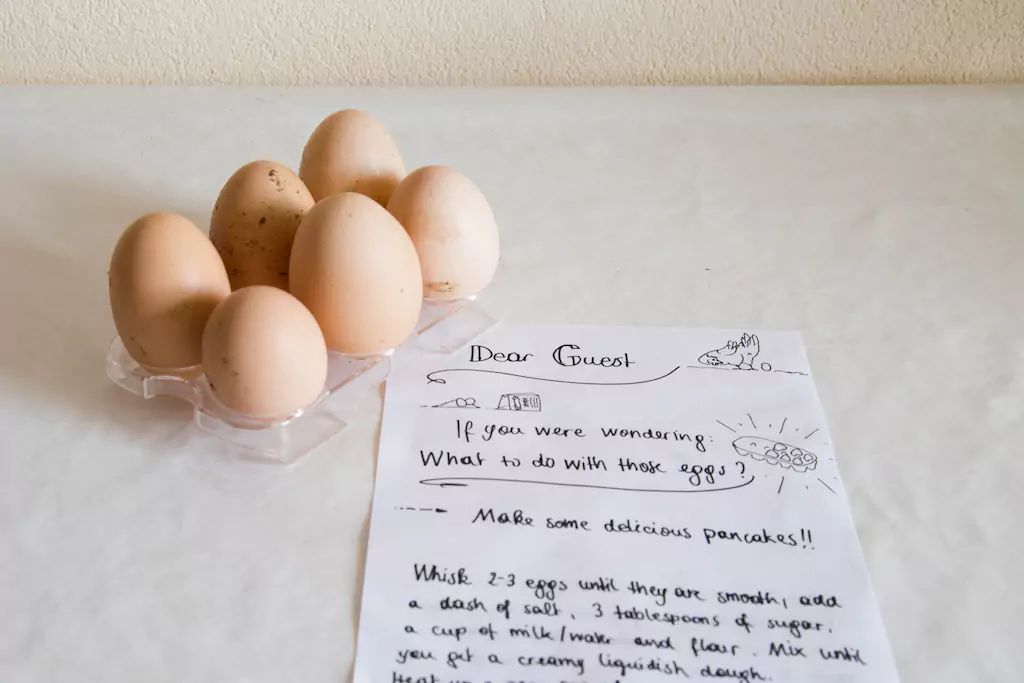 Dear Guest
If you were wondering:
What to do with those eggs?
Make some delicious pancakes!!
Whisk 2-3 eggs until they are smooth, add
a dash of salt, 3 tablespoons of sugar,
a cup of milk/water and flour. Mix until
you get a creamy liquidish dough.
Heat up a